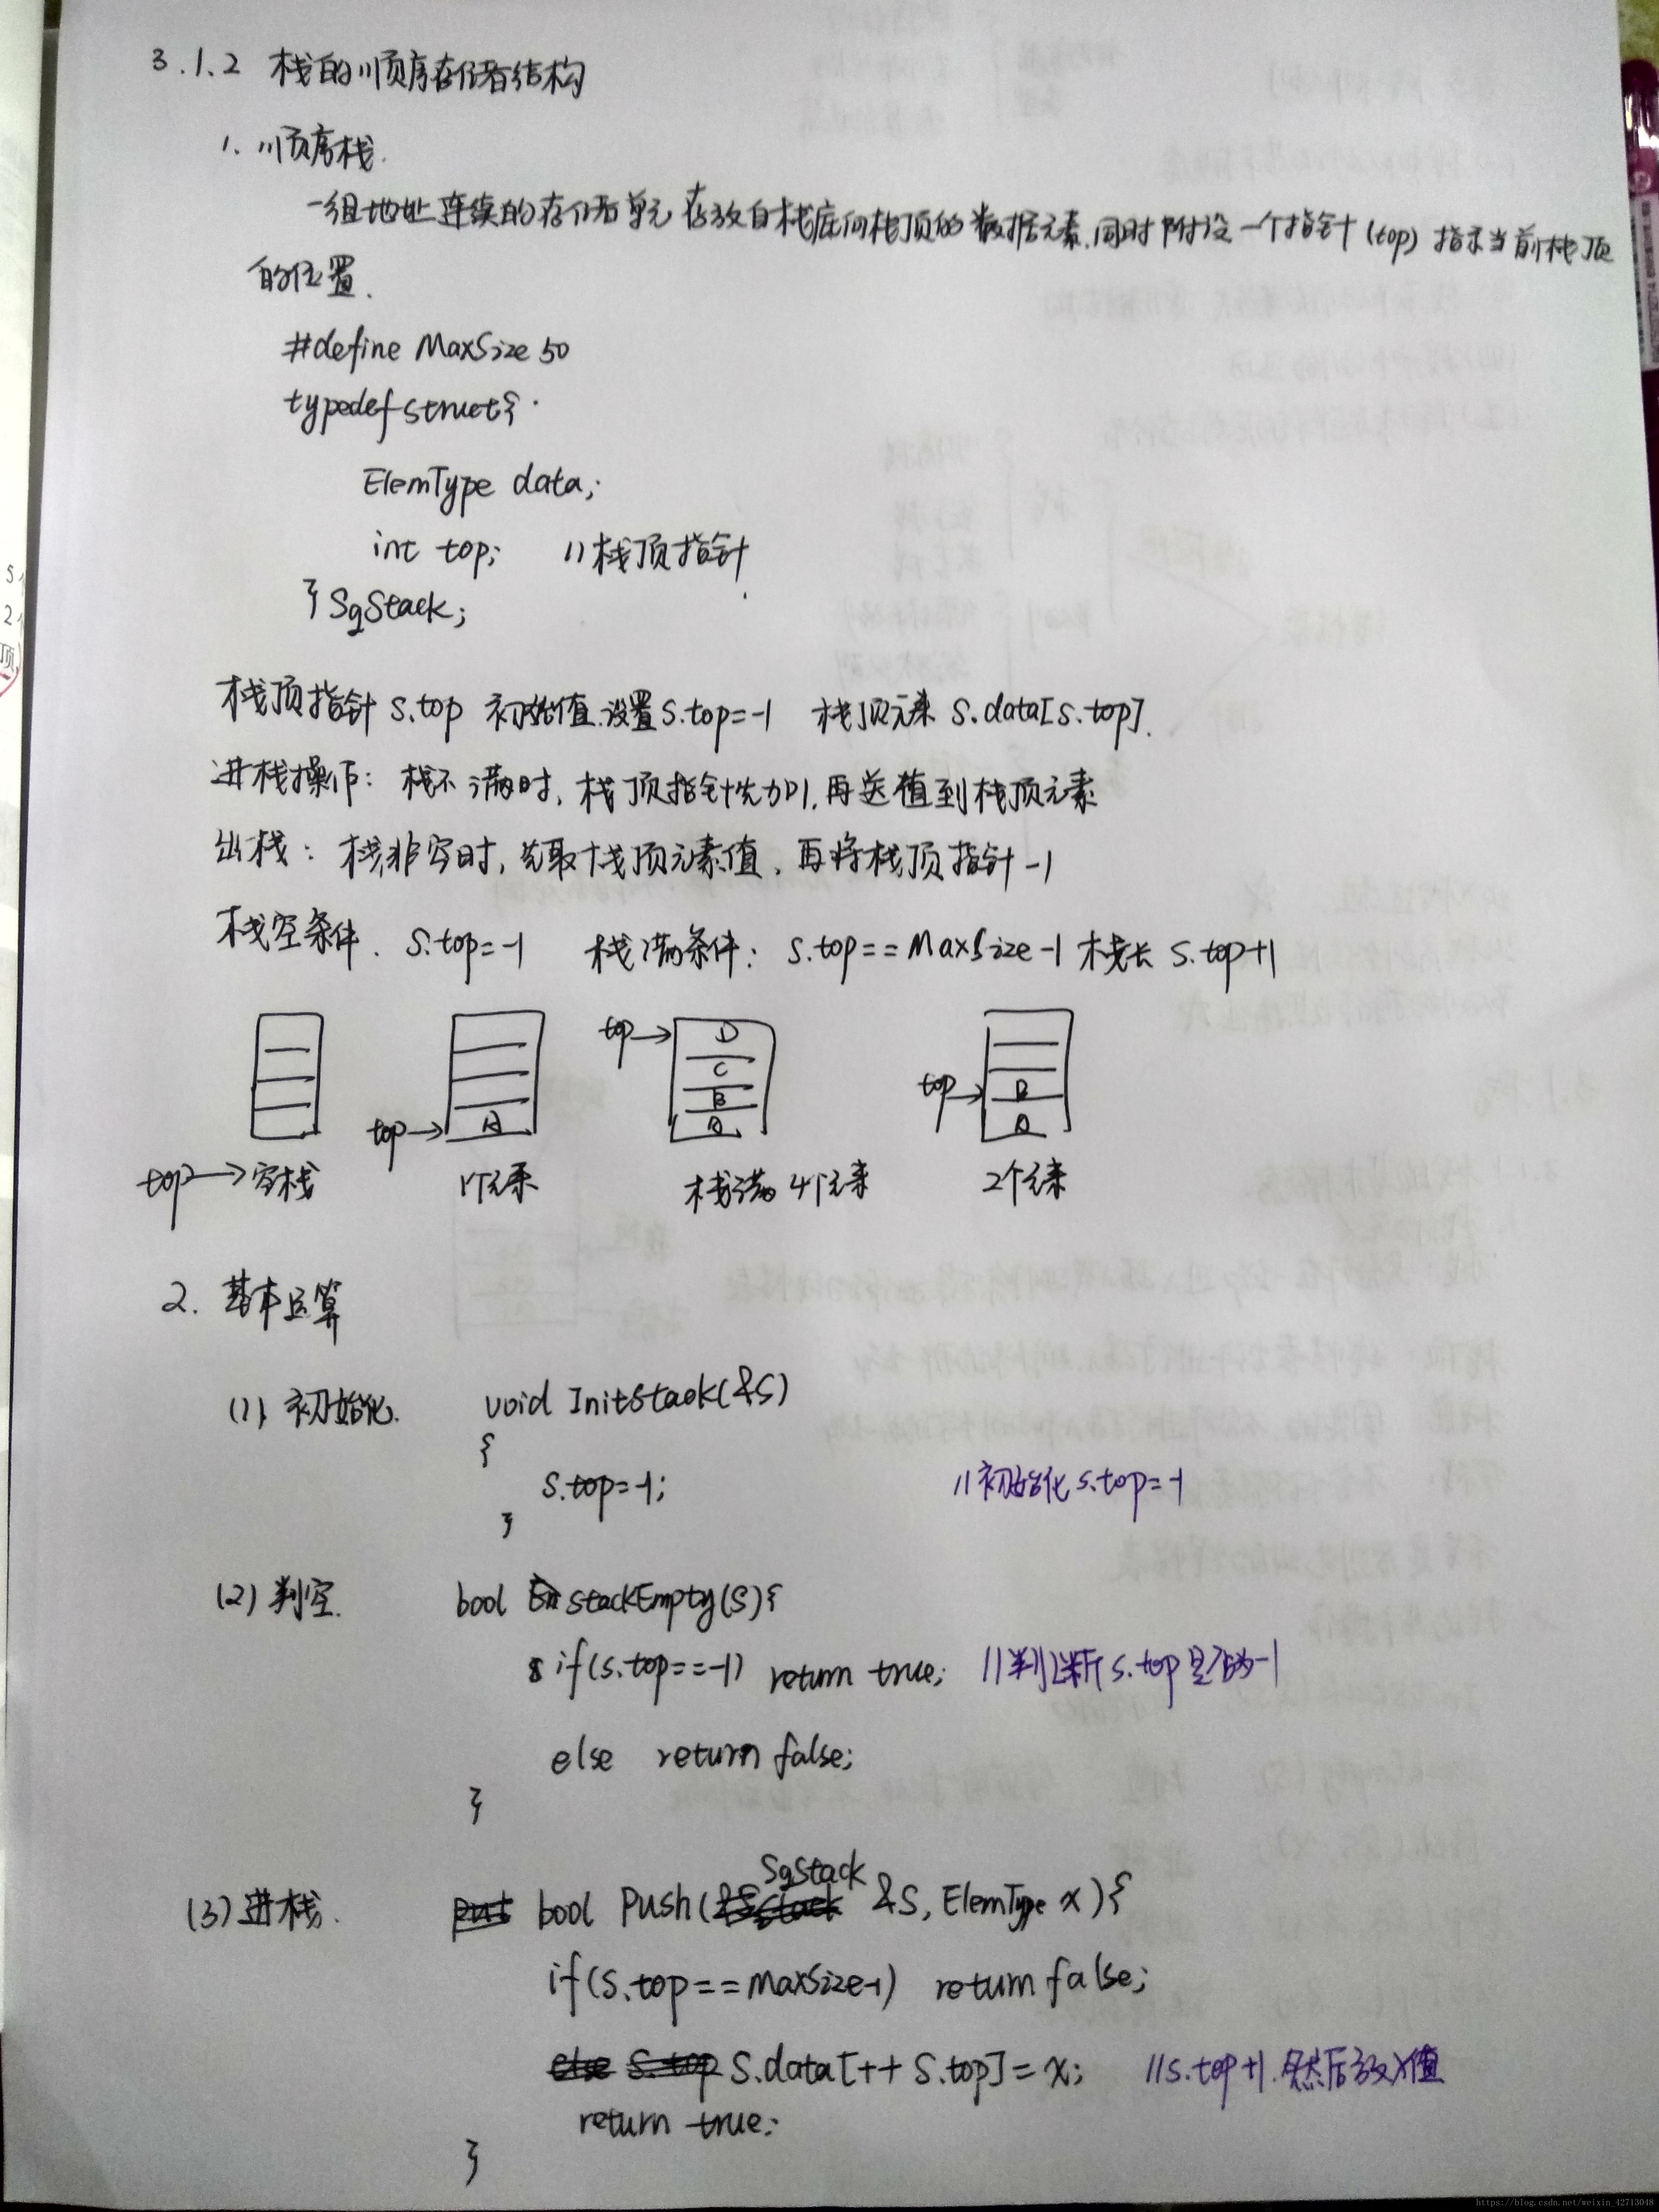 3.1.2 栈的顺序存储结构
1. 顺序栈.
一组地址连续的存储单元存放自栈底向栈顶的数据元素,同时附设一个指针(top)指示当前栈顶
的位置.
#define MaxSize 50
typedef struct{
ElemType data;
int top; //栈顶指针
} SqStack;
栈顶指针 S.top 初始值设置S.top=-1 栈顶元素 S.data[S.top].
进栈操作: 栈不满时,栈顶指针先加1,再送值到栈顶元素
出栈: 栈非空时,先取栈顶元素值,再将栈顶指针-1
栈空条件. S.top=-1 栈满条件: S.top==MaxSize-1 栈长 S.top+1
top→ D
C
B
A
top→ A
top→ B
A
top→ 空栈
1个元素
栈满 4个元素
2个元素
2. 基本运算
(1) 初始化. void InitStack(&S)
{
S.top=-1; //初始化 S.top=-1
}
(2) 判空. bool StackEmpty(S){
if(S.top==-1) return true; //判断S.top是否为-1
else return false;
}
(3) 进栈. bool Push(SqStack &S, ElemType x){
if(S.top==MaxSize-1) return false;
S.data[++S.top]=x; //S.top+1.然后放x值
return true;
}
5
2
顶
https://blog.csdn.net/weixin_42713048